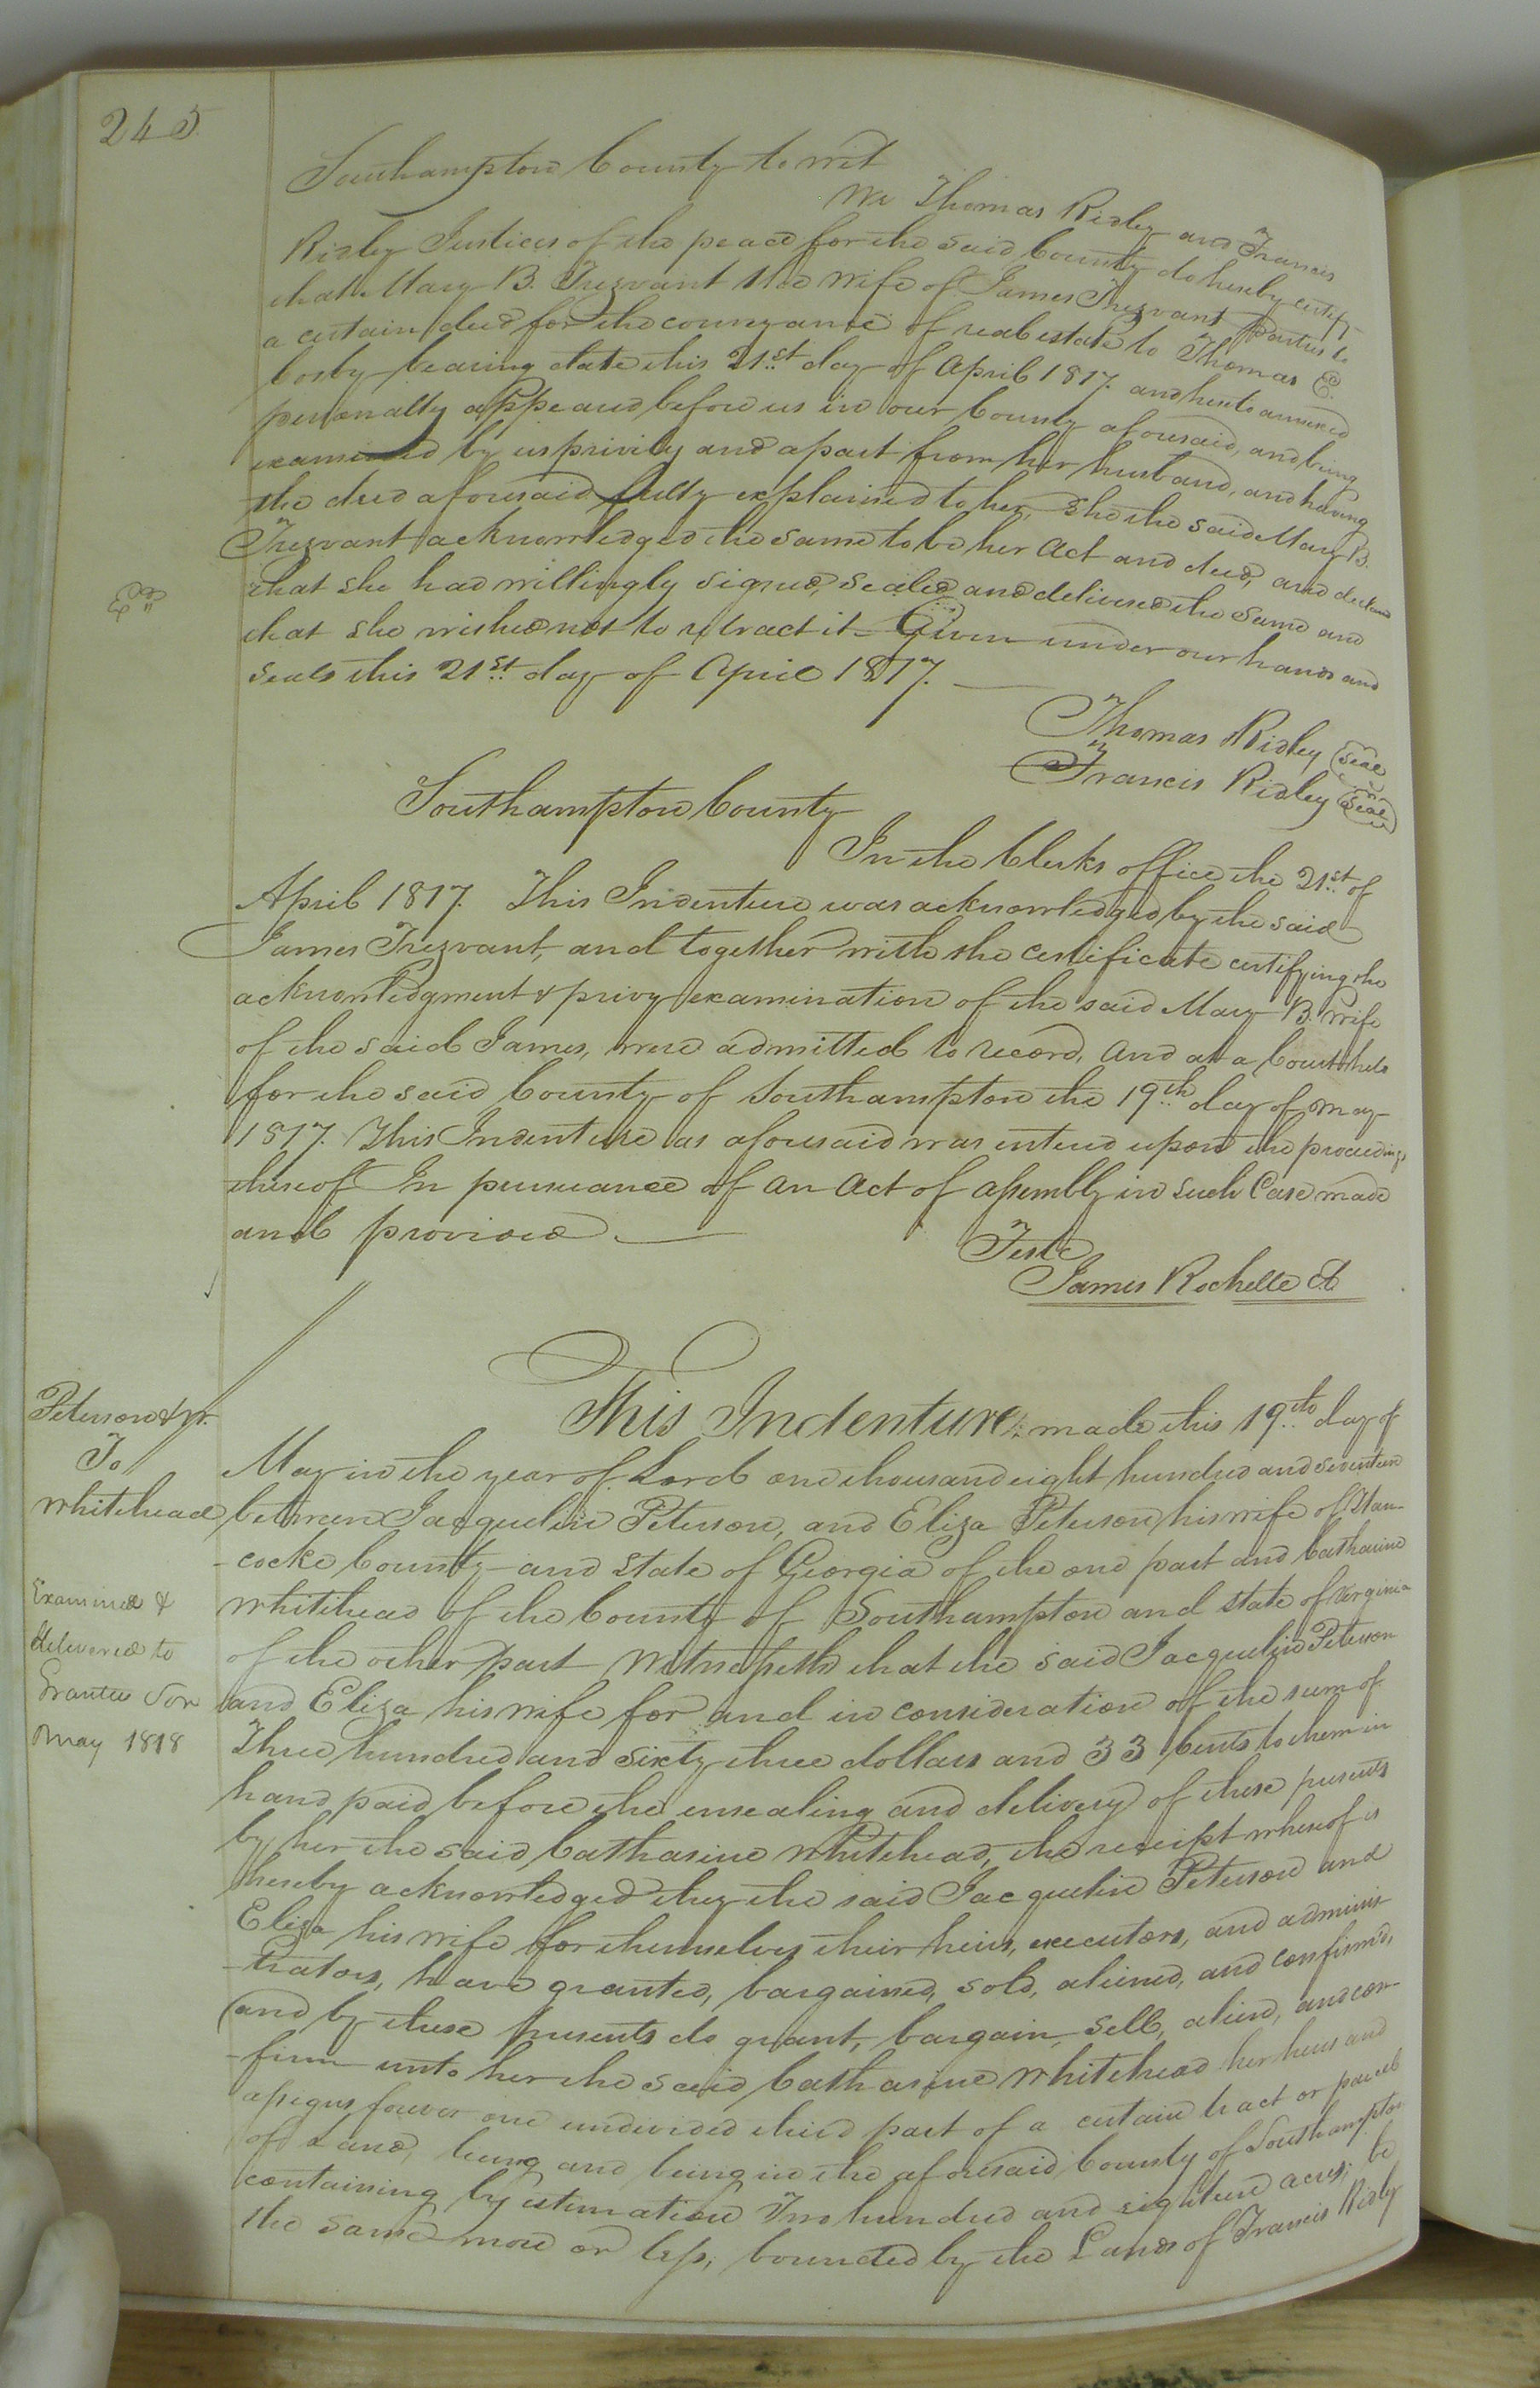 245
Southampton County to wit
We Thomas Ridley and Francis
Ridley Justices of the peace for the said County do hereby certify
that Mary B. Trezvant the wife of James Trezvant parties to
a certain deed for the conveyance of real estate to Thomas E.
Cosby bearing date this 21st day of April 1817. and hereto annexed
personally appeared before us in our County aforesaid, and being
examined by us privily and apart from her husband, and having
the deed aforesaid fully explained to her, She the said Mary B.
Trezvant acknowledged the same to be her Act and deed, and declared
that she had willingly signed, sealed and delivered the same and
that she wished not to retract it. Given under our hands and
seals this 21st day of April 1817.
Thomas Ridley Seal
Francis Ridley Seal
Southampton County
In the Clerks office the 21st of
April 1817. This Indenture was acknowledged by the said
James Trezvant, and together with the certificate certifying the
acknowledgment & privy examination of the said Mary B. wife
of the said James, were admitted to record, And at a Court held
for the said County of Southampton the 19th day of May
1817. This Indenture as aforesaid was entered upon the proceedings
thereof In pursuance of an Act of assembly in such Case made
and provided
Teste
James Rochelle Cl
Peterson & Ux.
To
Whitehead
Examined &
delivered to
Grantees Son
May 1818
This Indenture, made this 19th day of
May in the year of Lord one thousand eight hundred and seventeen
between Jacqueline Peterson, and Eliza Peterson his wife of Han-
-cocke County and State of Georgia of the one part and Catharine
Whitehead of the County of Southampton and state of Virginia
of the other part Witnesseth that the said Jacqueline Peterson
and Eliza his wife for and in consideration of the sum of
Three hundred and Sixty three dollars and 33 Cents to them in
hand paid before the ensealing and delivery of these presents
by her the said Catharine Whitehead, the receipt whereof is
hereby acknowledged they the said Jacqueline Peterson and
Eliza his wife for themselves their heirs, executors, and adminis
-trators, have granted, bargained, sold, aliened, and confirmed,
and by these presents do grant, bargain, sell, alien, and con-
-firm unto her the said Catharine Whitehead her heirs and
assigns forever one undivided third part of a certain tract or parcel
of Land, lying and being in the aforesaid County of Southampton
containing by estimation Two hundred and eighteen acres, be
the same more or less, bounded by the Lands of Francis Ridley